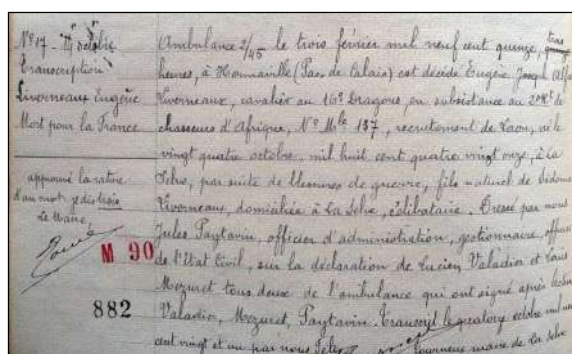 N° 17 - 14 octobre
Transcription
Liverneaux Eugène
Mort pour la France
approuvé la rature
d'un mot je dis trois
Le Maire,
M 90
882
Ambulance 2/45 le trois février mil neuf cent quinze, trois
heures, à (Pas de Calais) est décédé Eugène Joseph
Liverneaux, cavalier au 16e Dragons, en subsistance au 2e
chasseurs d'Afrique, N° Mle 137, recrutement de Laon, né le
vingt quatre octobre mil huit cent quatre vingt onze, à La
Selve, par suite de blessures de guerre, fils naturel de
Liverneaux, domiciliée à La Selve, célibataire. Dressé par nous
Jules Paytavin, officier d'administration, gestionnaire, officier
de l'Etat Civil, sur la déclaration de Lucien Valadier et Louis
Mozuret tous deux de l'ambulance qui ont signé après lecture
Valadier, Mozuret, Paytavin. Transcrit le quatorze octobre mil neuf
cent vingt et un par nous maire de La Selve